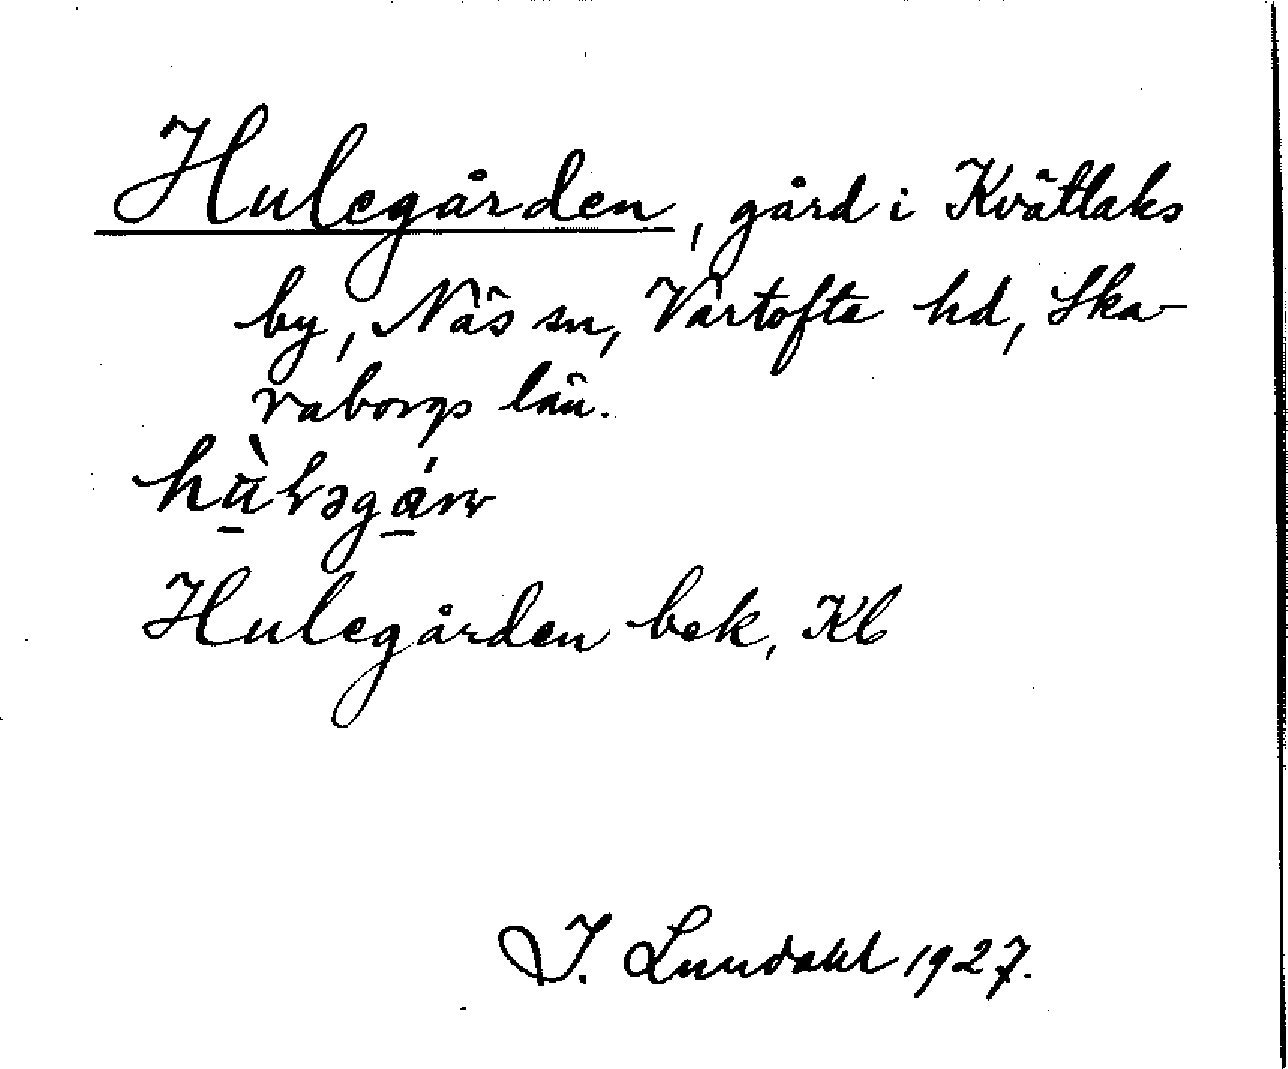 Hulegården, gård i Kvättaks
by, Näs sn, Vartofta hd, Ska-
raborgs län.
Hulegården bek, Kb
I. Lundahl 1927.